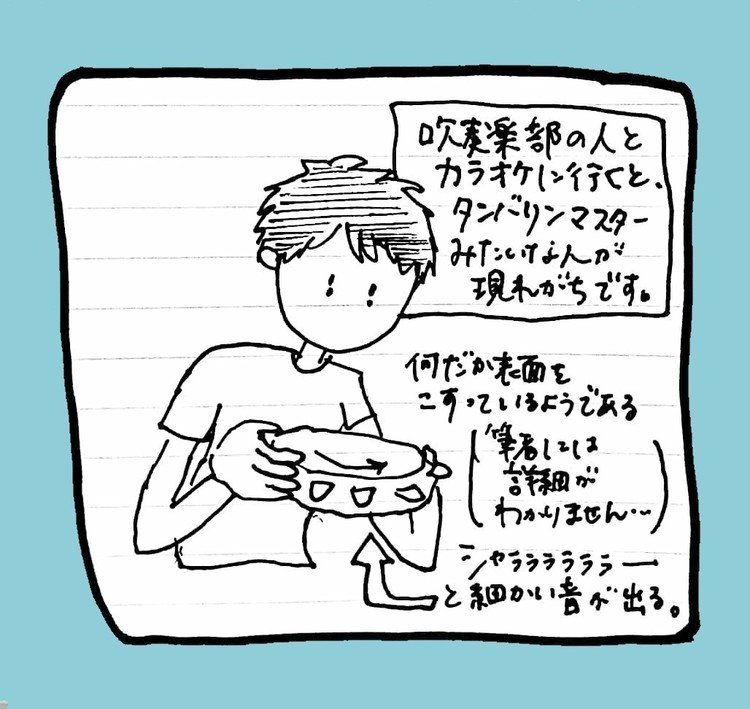 吹奏楽部の人と
カラオケに行くと、
タンバリンマスター
みたいな人が
現れがちです。
何だか表面を
こすっているようである
(筆者には
詳細が
わかりません…)
シャラララララー
と細かい音が出る。